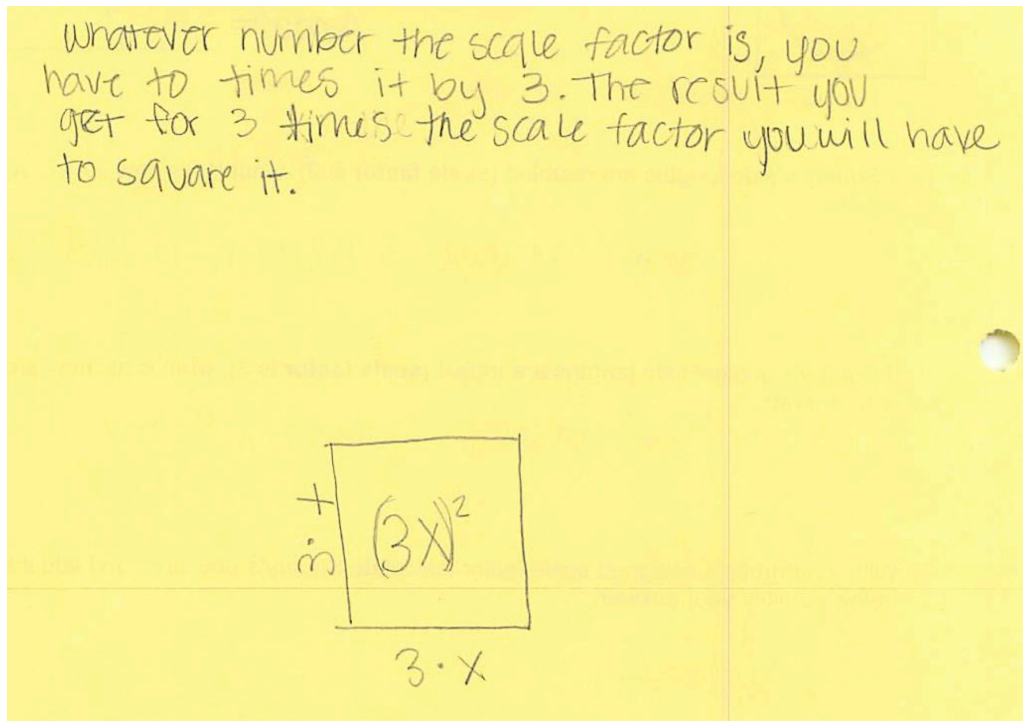 whatever number the scale factor is, you
have to times it by 3. The result you
get for 3 times the scale factor you will have
to square it.
3 · x
(3x)²
3 · x